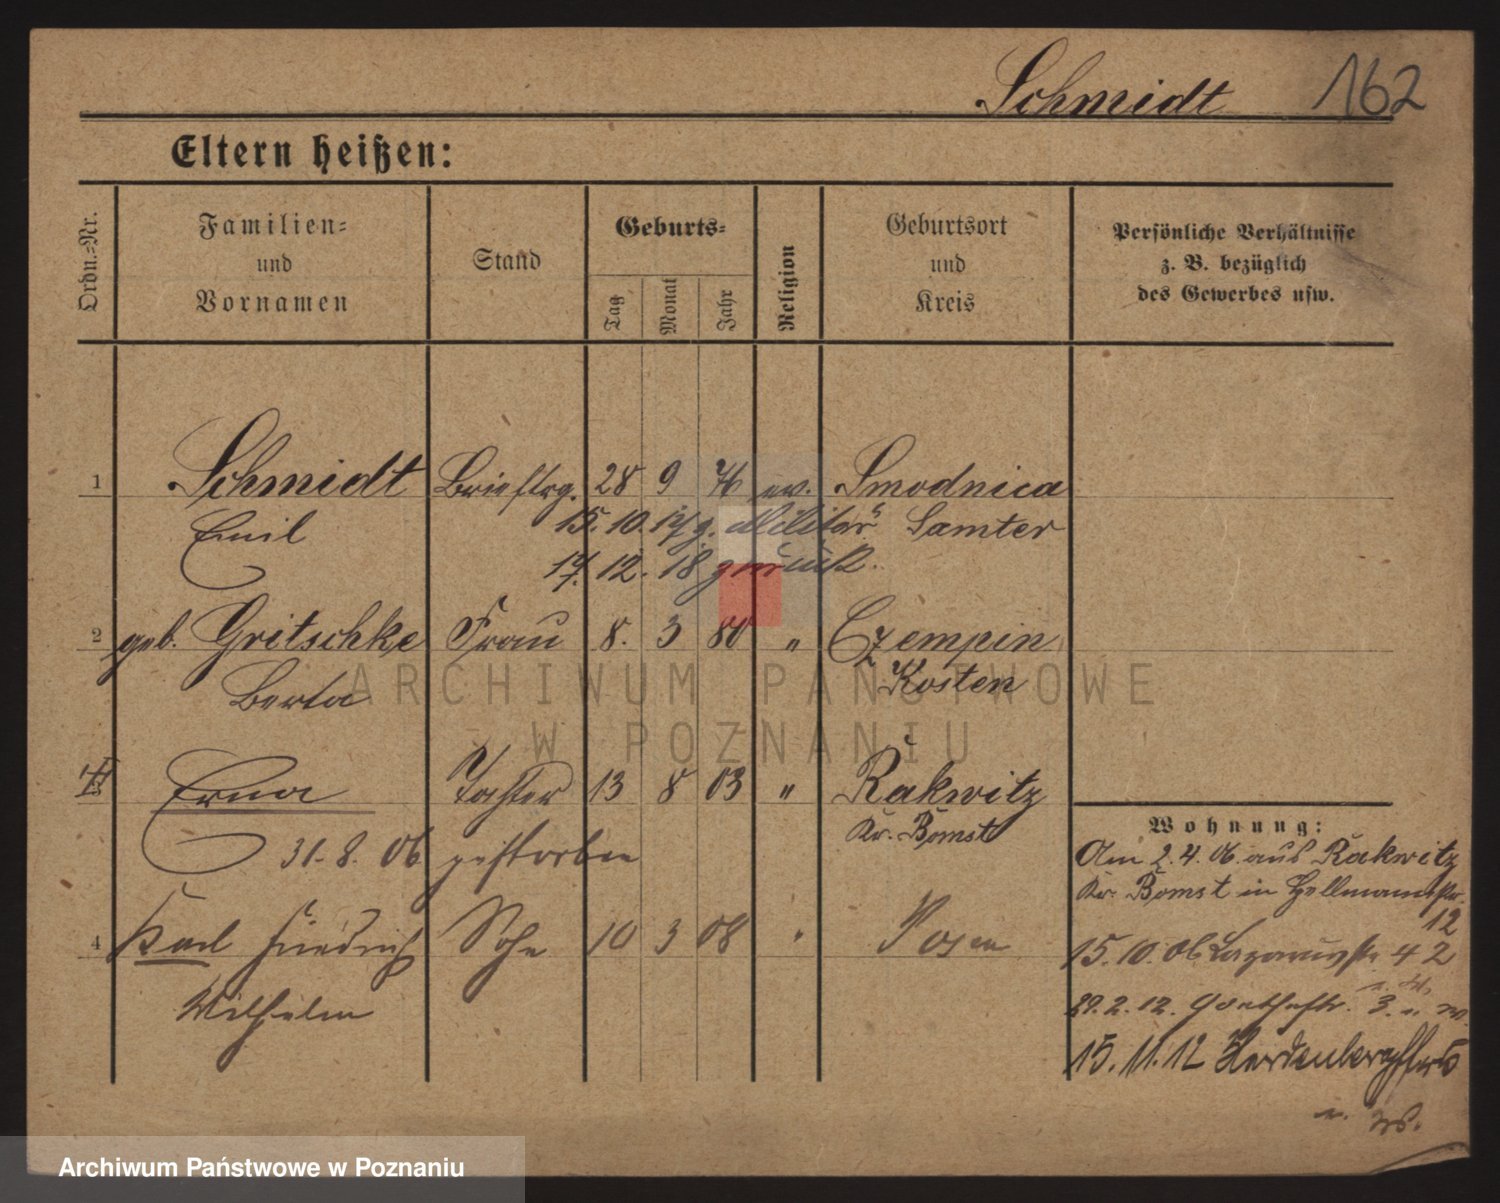 Schmidt 162
Eltern heißen:
Ordn.-Nr.
Familien-
und
Vornamen
Stand
Geburts-
Tag
Monat
Jahr
Religion
Geburtsort
und
Kreis
Persönliche Verhältnisse
z. B. bezüglich
des Gewerbes usw.
1 Schmidt Brieftrg. 28 9 76 ev. Smodnica
Emil 15. 10. 17 z. Militär Samter
17. 12. 18 zurück.
2 geb. Gritschke Frau 8. 3 80 " Czempin
Berta Kosten
Erna Tochter 13 8 03 " Rakwitz
Kr. Bomst
31. 8. 06 gestorben
4 Karl Friedrich Sohn 10 3 08 " Posen
Wilhelm
Wohnung:
Am 2. 4. 06. aus Rakwitz
Kr. Bomst in Hellmannstr.
12
15. 10. 06 Lazarusstr 42
29. 2. 12. Goethestr. 3.
15. 11. 12
ARCHIWUM PAŃSTWOWE
W POZNANIU
Archiwum Państwowe w Poznaniu